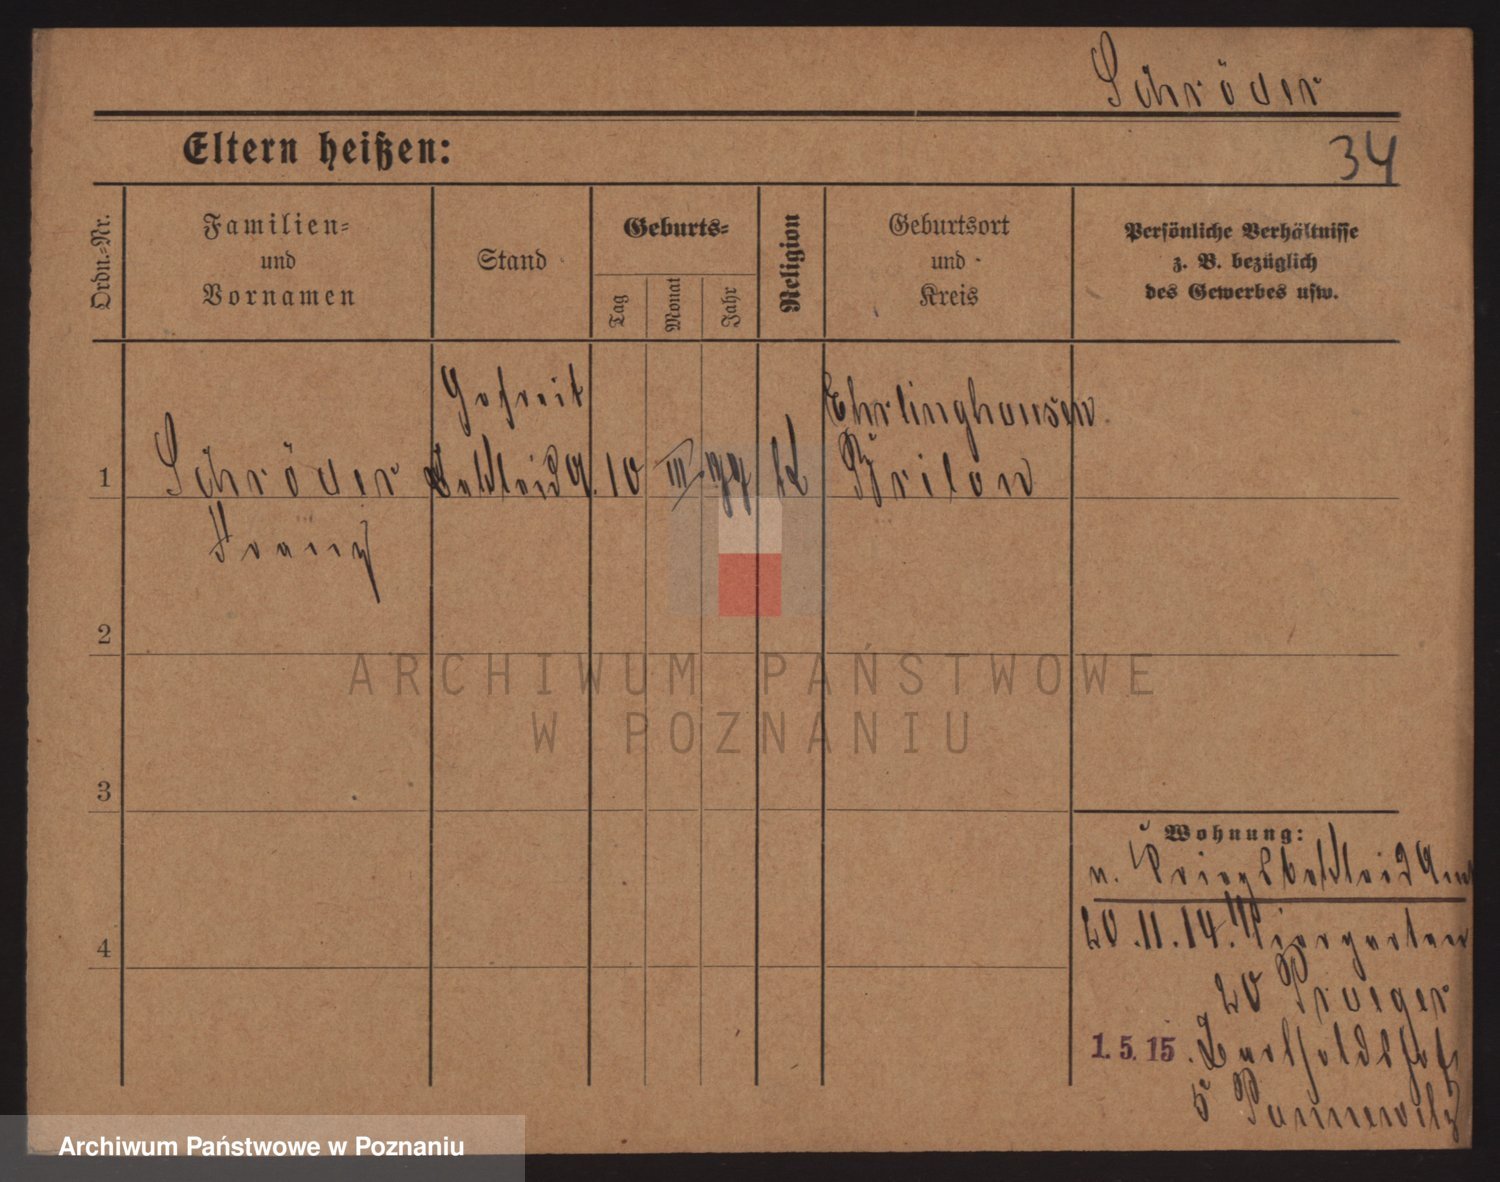 Schröder
Eltern heißen:
34
Ordn.=Nr.
Familien=
und
Vornamen
Stand
Geburts=
Tag
Monat
Jahr
Religion
Geburtsort
und
Kreis
Persönliche Verhältnisse
z. B. bezüglich
des Gewerbes usw.
Gefreit
Ehrlinghausen
1
Schröder
10
III
Brilon
Franz
2
ARCHIWUM PAŃSTWOWE
W POZNANIU
3
Wohnung:
n. Kriegsbekleid Amt
20.11.14. Tiergarten
4
20 Prueger
1. 5. 15.
5 Pannewitz
Archiwum Państwowe w Poznaniu